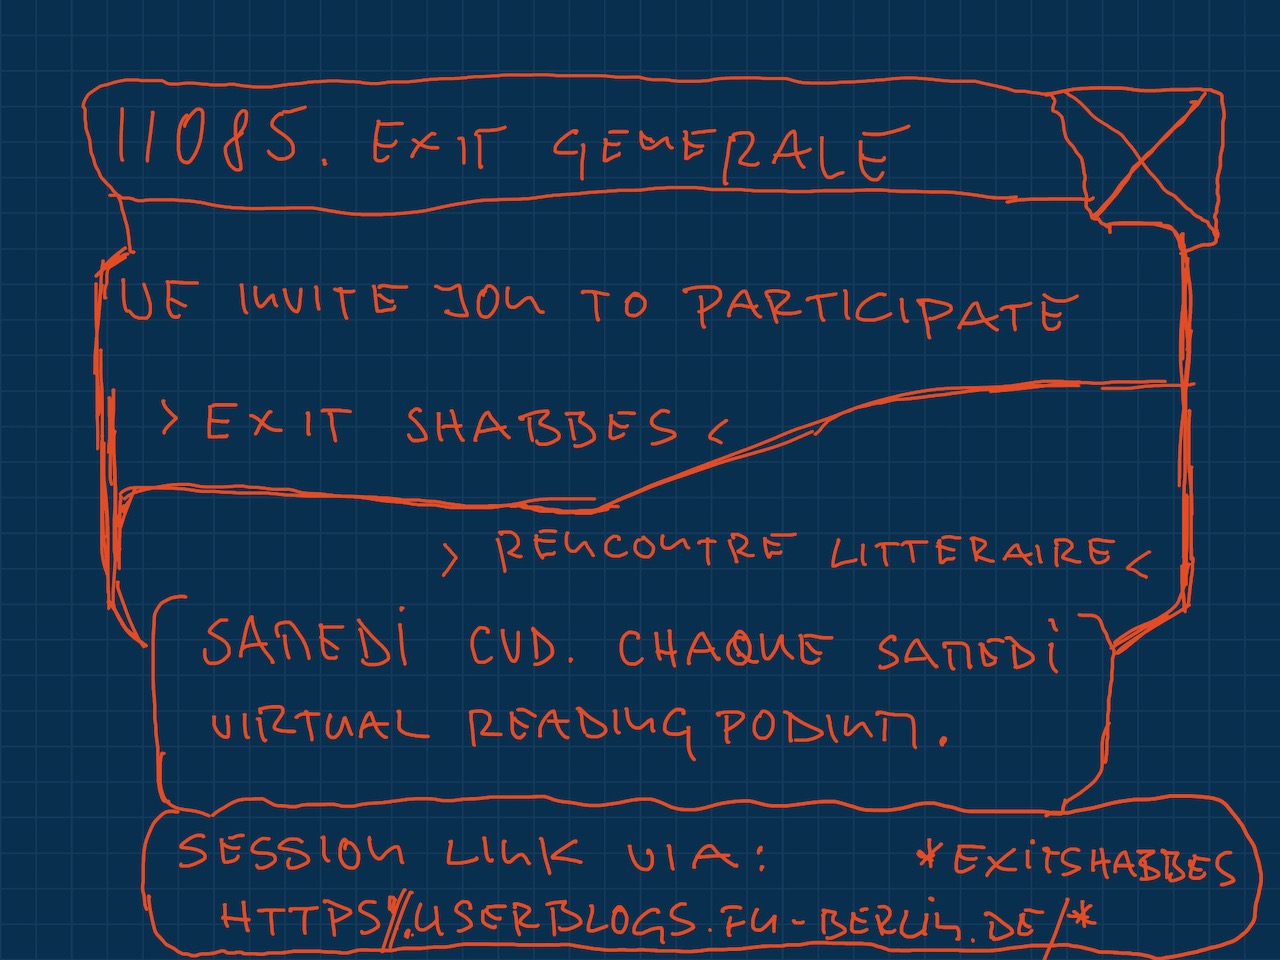 11085. EXIT GENERALE
WE INVITE YOU TO PARTICIPATE
> EXIT SHABBES <
> RENCONTRE LITTERAIRE <
SAMEDI CVD. CHAQUE SAMEDI
VIRTUAL READING PODIUM.
SESSION LINK VIA: *EXITSHABBES
HTTPS//:USERBLOGS.FU-BERLIN.DE/*